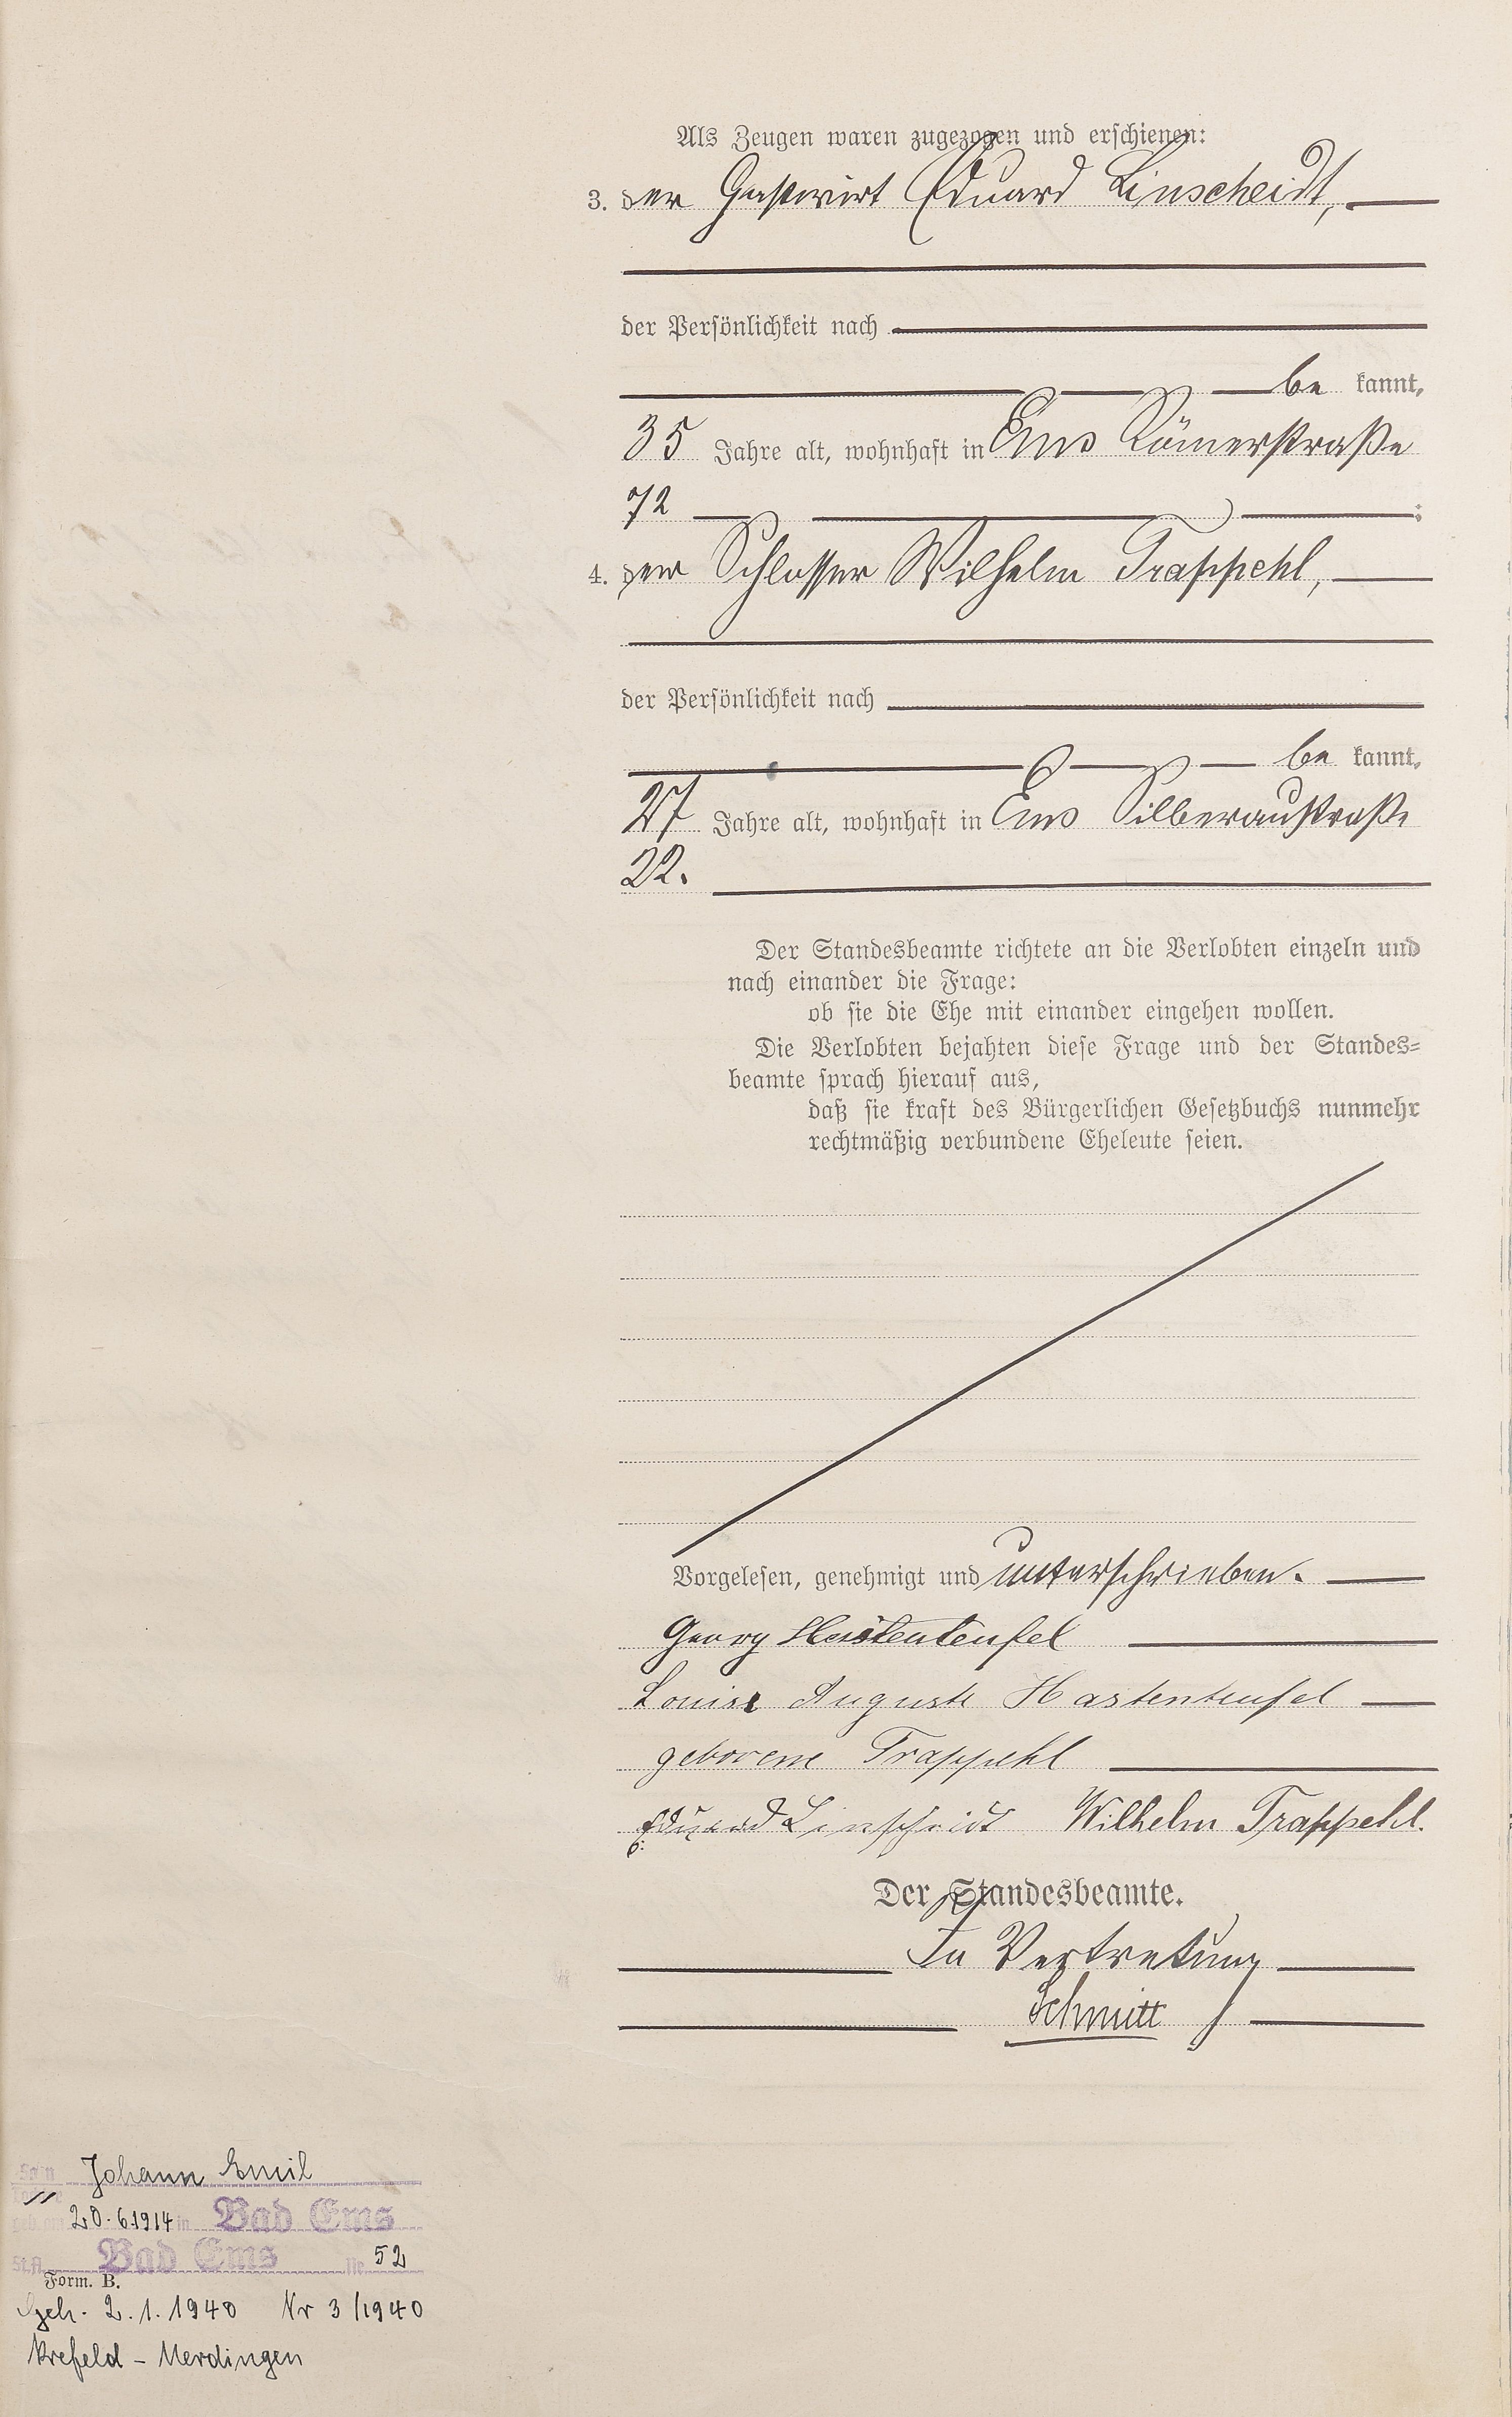 Als Zeugen waren zugezogen und erschienen:
3. der Gastwirt Eduard Linscheidt,
der Persönlichkeit nach
be kannt,
35 Jahre alt, wohnhaft in Ems Römerstraße
72 ;
4. der Schlosser Wilhelm Trappehl,
der Persönlichkeit nach
be kannt,
27 Jahre alt, wohnhaft in Ems Silberaustraße
22.
Der Standesbeamte richtete an die Verlobten einzeln und
nach einander die Frage:
ob sie die Ehe mit einander eingehen wollen.
Die Verlobten bejahten diese Frage und der Standes-
beamte sprach hierauf aus,
daß sie kraft des Bürgerlichen Gesetzbuchs nunmehr
rechtmäßig verbundene Eheleute seien.
Vorgelesen, genehmigt und unterschrieben.
Georg Hastenteufel
Louise Auguste Hastenteufel
geborene Trappehl
Eduard Linscheidt Wilhelm Trappehl.
Der Standesbeamte.
In Vertretung
Schmitt
Sohn Johann Emil
geb. am 20.6.1914 in Bad Ems
St.A. Bad Ems Nr. 52
Form. B.
Geh. 2.1.1940 Nr 3/1940
Krefeld - Uerdingen